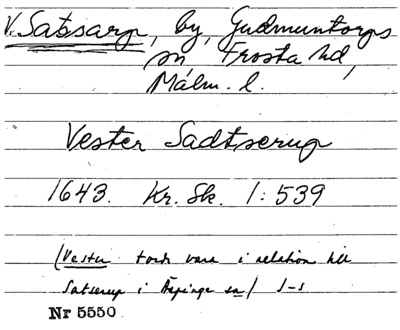 V. Satsarp, by, Gudmuntorps
sn Frosta hd,
Malm. l.
Vester Sadtzerup
1643. Kr. Sk. 1:539
(Vester torde vara i relation till
Satserup i Äspinge sn) J-s
Nr 5550